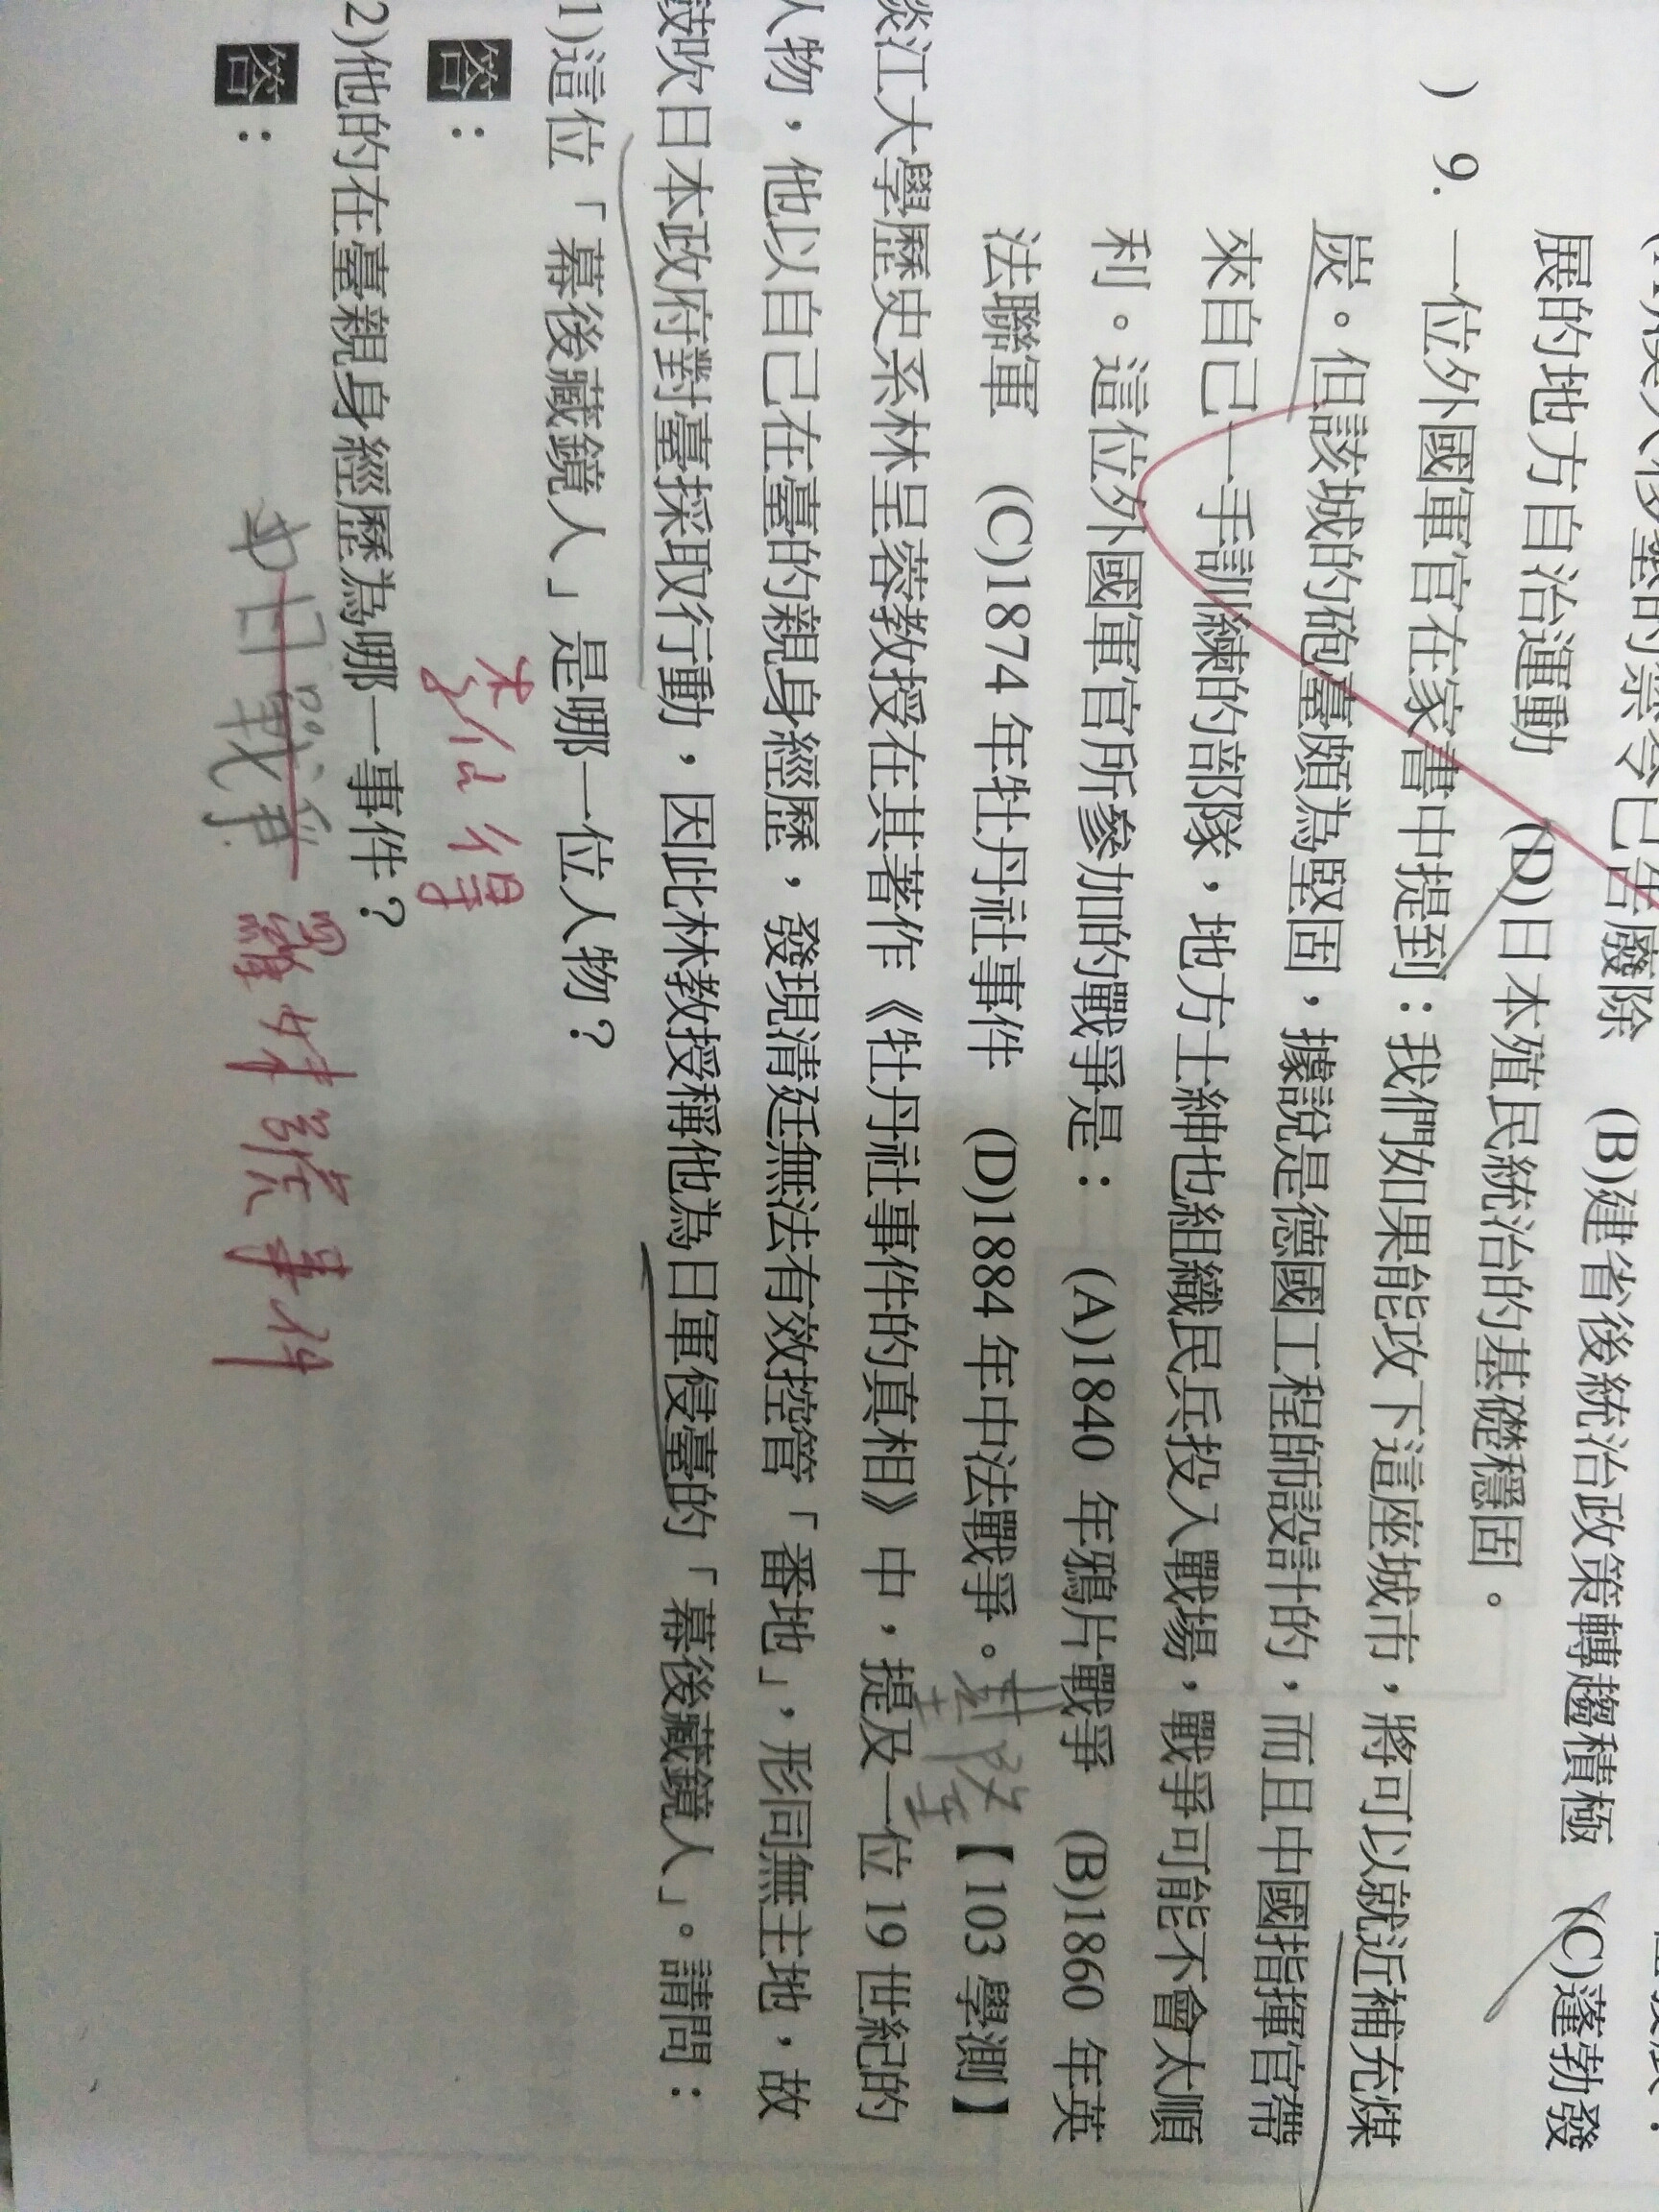 令已告廢除 (B)建省後統治政策轉趨積極 (C)蓬勃發
展的地方自治運動 (D)日本殖民統治的基礎穩固。
) 9. 一位外國軍官在家書中提到：我們如果能攻下這座城市，將可以就近補充煤
炭。但該城的砲臺頗為堅固，據說是德國工程師設計的，而且中國指揮官帶
來自己一手訓練的部隊，地方士紳也組織民兵投入戰場，戰爭可能不會太順
利。這位外國軍官所參加的戰爭是： (A)1840 年鴉片戰爭 (B)1860 年英
法聯軍 (C)1874 年牡丹社事件 (D)1884 年中法戰爭。 【103 學測】
淡江大學歷史系林呈蓉教授在其著作《牡丹社事件的真相》中，提及一位 19 世紀的
人物，他以自己在臺的親身經歷，發現清廷無法有效控管「番地」，形同無主地，故
鼓吹日本政府對臺採取行動，因此林教授稱他為日軍侵臺的「幕後藏鏡人」。請問：
1)這位「幕後藏鏡人」是哪一位人物？
答： 李仙得
2)他的在臺親身經歷為哪一事件？
答： 中日戰爭 羅妹號事件